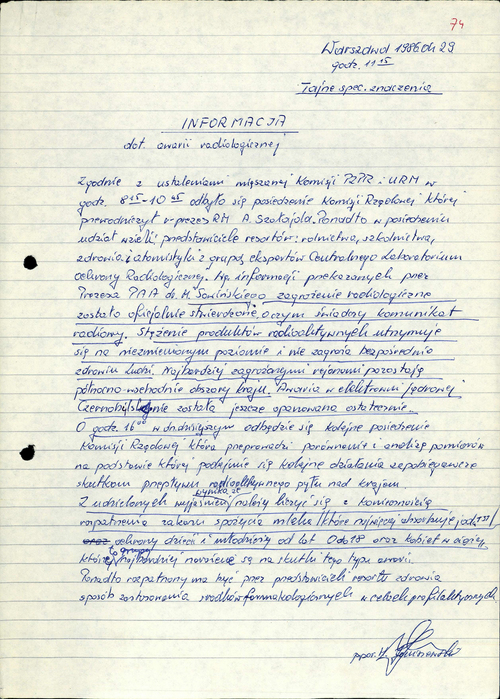 74
Warszawa 1986 04 29
godz. 11 15
Tajne spec. znaczenia
INFORMACJA
dot. awarii radiologicznej
Zgodnie z ustaleniami mieszanej Komisji PZPR i URM w
godz. 8 15 - 10 45 odbyło się posiedzenie Komisji Rządowej której
przewodniczył v-prezes RM A. Szałajda. Ponadto w posiedzeniu
udział wzięli: przedstawiciele resortów: rolnictwa, szkolnictwa,
zdrowia i atomistyki z grupą ekspertów Centralnego Laboratorium
Ochrony Radiologicznej. Wg. informacji przekazanych przez
Prezesa PAA dr. M. Sowińskiego zagrożenie radiologiczne
zostało oficjalnie stwierdzone, o czym świadczy komunikat
radiowy. Stężenie produktów radioaktywnych utrzymuje
się na niezmienionym poziomie i nie zagraża bezpośrednio
zdrowiu ludzi. Najbardziej zagrożonymi rejonami pozostają
północno-wschodnie obszary kraju. Awaria w elektrowni jądrowej
Czernobylsk nie została jeszcze opanowana ostatecznie.
O godz. 16 00 w dn. dzisiejszym odbędzie się kolejne posiedzenie
Komisji Rządowej która przeprowadzi porównanie i analizę pomiarów
na podstawie której podejmie się kolejne działania zapobiegawcze
skutkom przepływu radioaktywnego pyłu nad krajem.
Z udzielonych wyjaśnień wynika, że należy liczyć się z koniecznością
rozpatrzenia zakazu spożycia mleka (które najwięcej absorbuje jod 131)
oraz ochrony dzieci i młodzieży od lat 0 do 18 oraz kobiet w ciąży,
które to grupy najbardziej narażone są na skutki tego typu awarii.
Ponadto rozpatrzony ma być przez przedstawicieli resortu zdrowia
sposób zastosowania środków farmakologicznych w celach profilaktycznych
ppor. H.